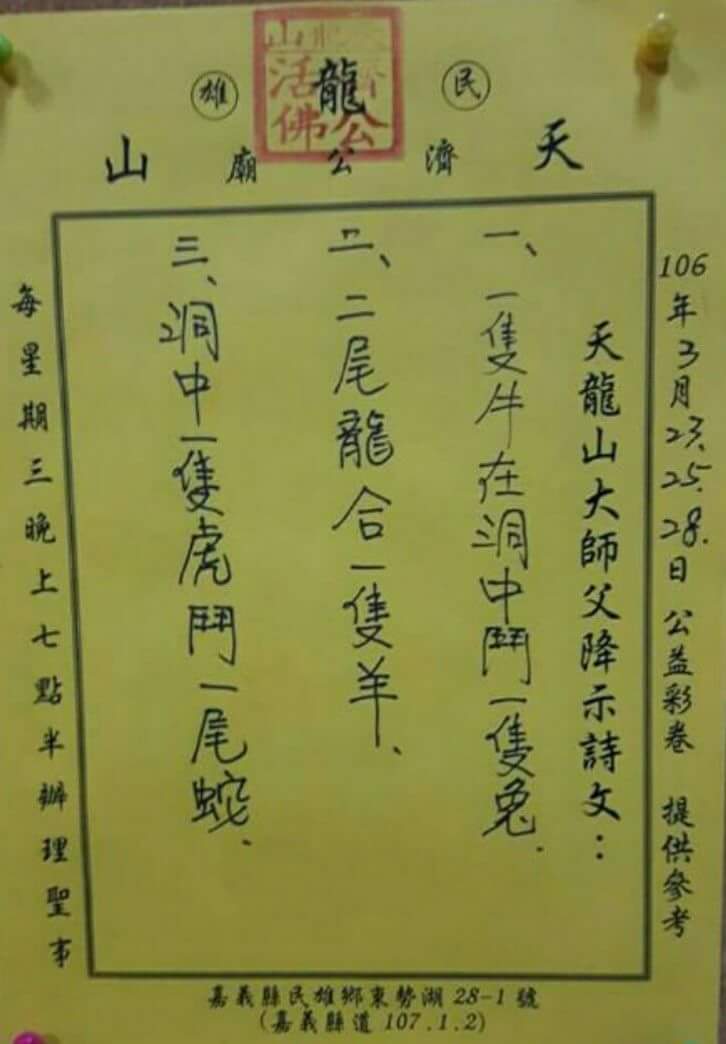 民雄
天龍山
濟公廟
山
活佛
公
106年3月23.25.28日 公益彩卷 提供參考
天龍山大師父降示詩文：
一、一隻牛在洞中鬥一隻兔.
二、二尾龍合一隻羊、
三、洞中一隻虎鬥一尾蛇.
每星期三晚上七點半辦理聖事
嘉義縣民雄鄉東勢湖 28-1 號
(嘉義縣道 107.1.2)